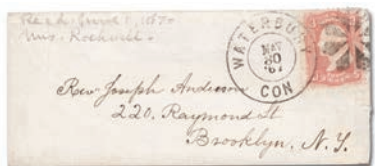 Rec'd. June 1, 1867.
Mrs. Rockwell.
WATERBURY
MAY
30
'67
CON
Rev. Joseph Anderson
220. Raymond St
Brooklyn, N. Y.